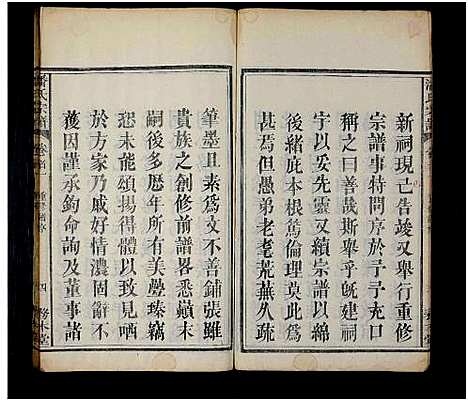 新祠現已告竣又舉行重修
宗譜事特問序於予予充口
稱之曰善哉斯舉乎旣建祠
宇以妥先靈又續宗譜以綿
後緒庇本根篤倫理莫此爲
甚焉但愚弟老耄荒蕪久疏
筆墨且素爲文不善鋪張雖
貴族之創修前譜畧悉顚末
嗣後多歷年所有美疊臻竊
恐未能頌揚得體以致見哂
於方家乃戚好情濃固辭不
獲因謹承鈞命詢及董事諸
潘氏宗譜
卷首
四
務本堂